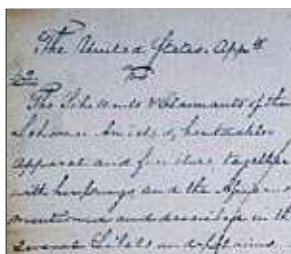 The United States, Appts
vs
The Libellants & Claimants of the
Schooner Amistad, her tackle
apparel and furniture, together
with her cargo, and the Africans
mentioned and described in the
several Libels and claims